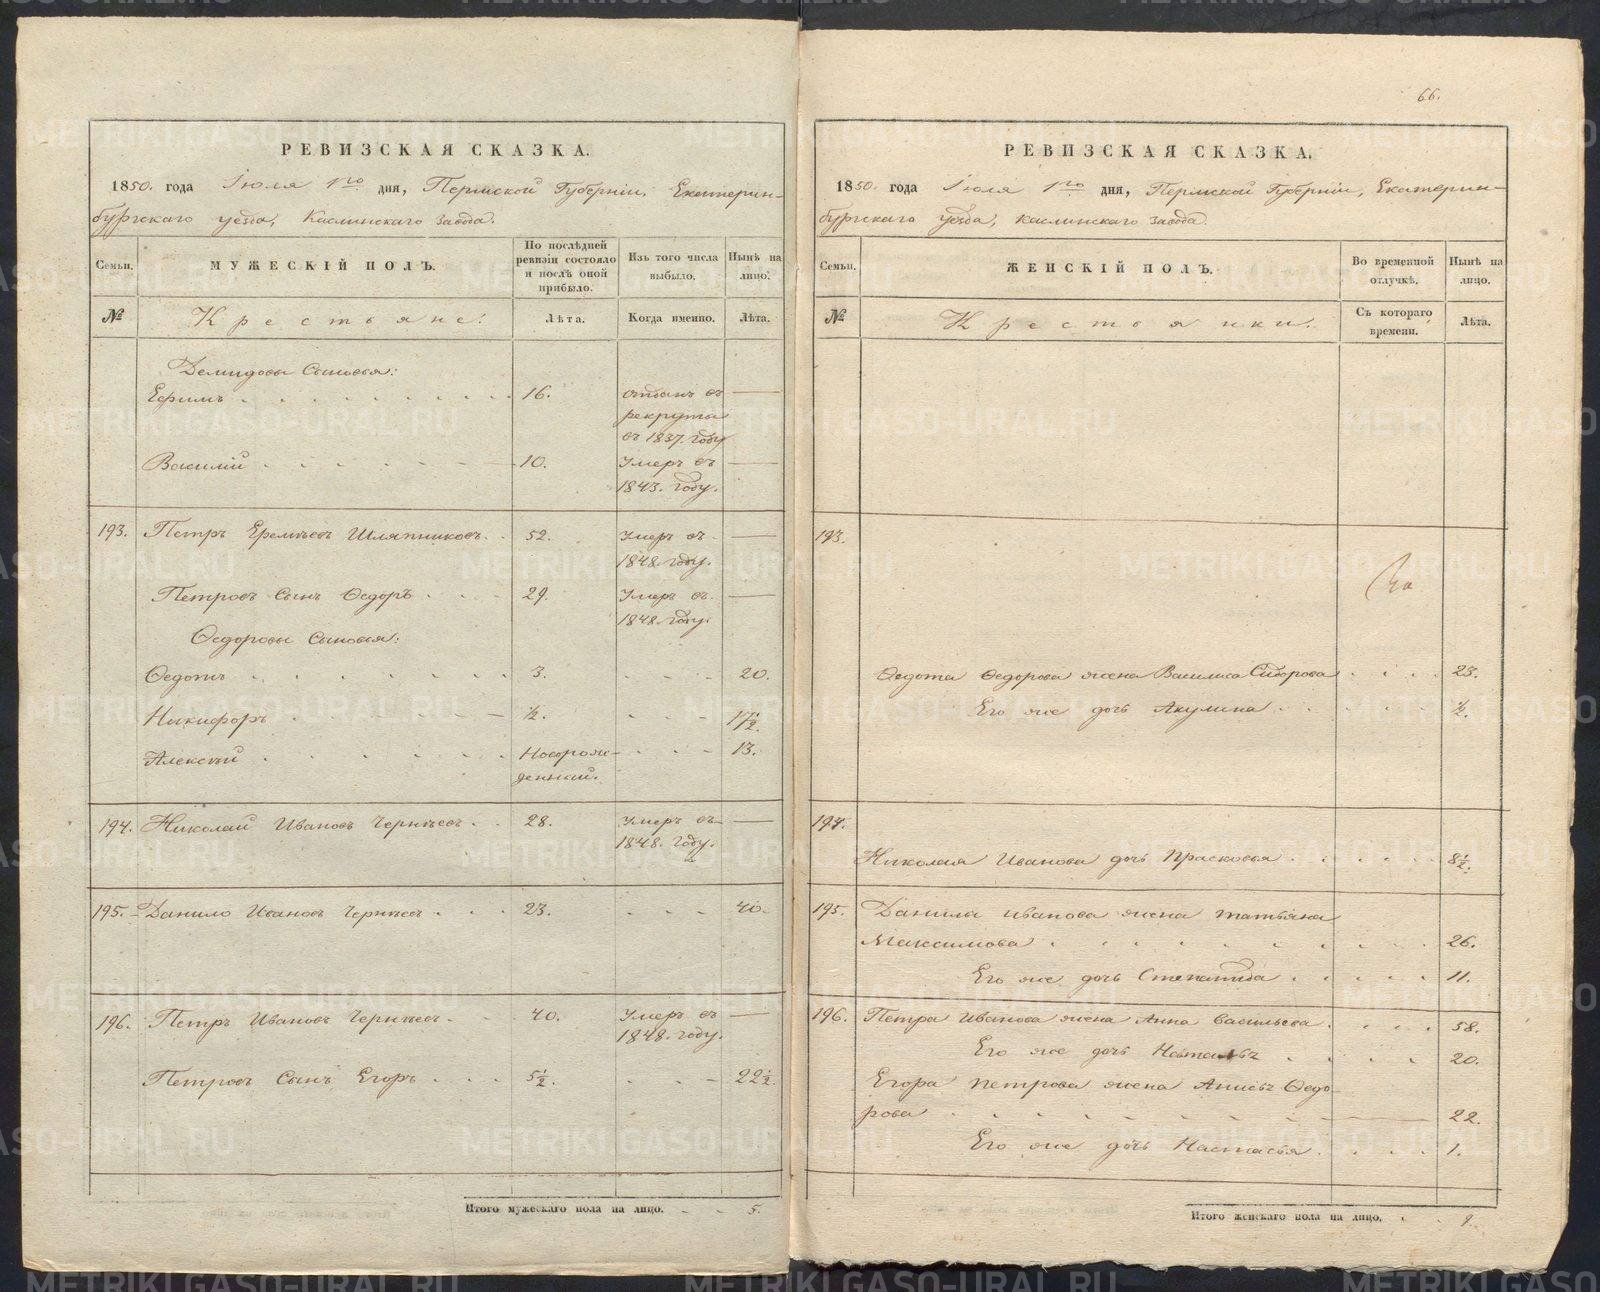 РЕВИЗСКАЯ СКАЗКА.
1850. года Іюля 1го дня, Пермской Губерніи, Екатерин-
бургскаго уезда, Каслинскаго завода.
Семьи.
МУЖЕСКІЙ ПОЛЪ.
По послѣдней ревизіи состояло и послѣ оной прибыло.
Изъ того числа выбыло.
Нынѣ на лицо.
№ Крестьяне. Лѣта. Когда именно. Лѣта.
Демидовы Сыновья:
Ефимъ 16. отданъ въ —
рекруты
въ 1837. году
Василій 10. Умеръ въ —
1843. году.
193. Петръ Еремѣевъ Шляпниковъ. 52. Умеръ въ —
1848. году.
Петровъ Сынъ Ѳедоръ 29. Умеръ въ —
1848. году.
Ѳедоровы Сыновья:
Ѳедотъ 3. 20.
Никифоръ ½. 17½.
Алексѣй Новорож- 13.
денный.
194. Николай Ивановъ Чернѣевъ 28. Умеръ въ —
1848. году.
195. Данило Ивановъ Чернѣевъ 23. 40.
196. Петръ Ивановъ Чернѣевъ. 40. Умеръ въ —
1848. году.
Петровъ Сынъ Егоръ 5½. 22½.
Итого мужескаго пола на лицо. 5.
66.
РЕВИЗСКАЯ СКАЗКА.
1850. года Іюля 1го дня, Пермской Губерніи, Екатерин-
бургскаго уезда, Каслинскаго завода.
Семьи.
ЖЕНСКІЙ ПОЛЪ.
Во временной отлучкѣ.
Нынѣ на лицо.
№ Крестьянки. Съ котораго времени. Лѣта.
193.
Ѳедота Ѳедорова жена Василиса Сидорова 23.
Его же дочь Акулина ½.
194.
Николая Иванова дочь Прасковья 8½.
195. Данилы Иванова жена Татьяна
Максимова 26.
Его же дочь Степанида 11.
196. Петра Иванова жена Анна Васильева 58.
Его же дочь 20.
Егора Петрова жена Ѳедо-
рова 22.
Его же дочь Настасья 1.
Итого женскаго пола на лицо.
METRIKI.GASO-URAL.RU